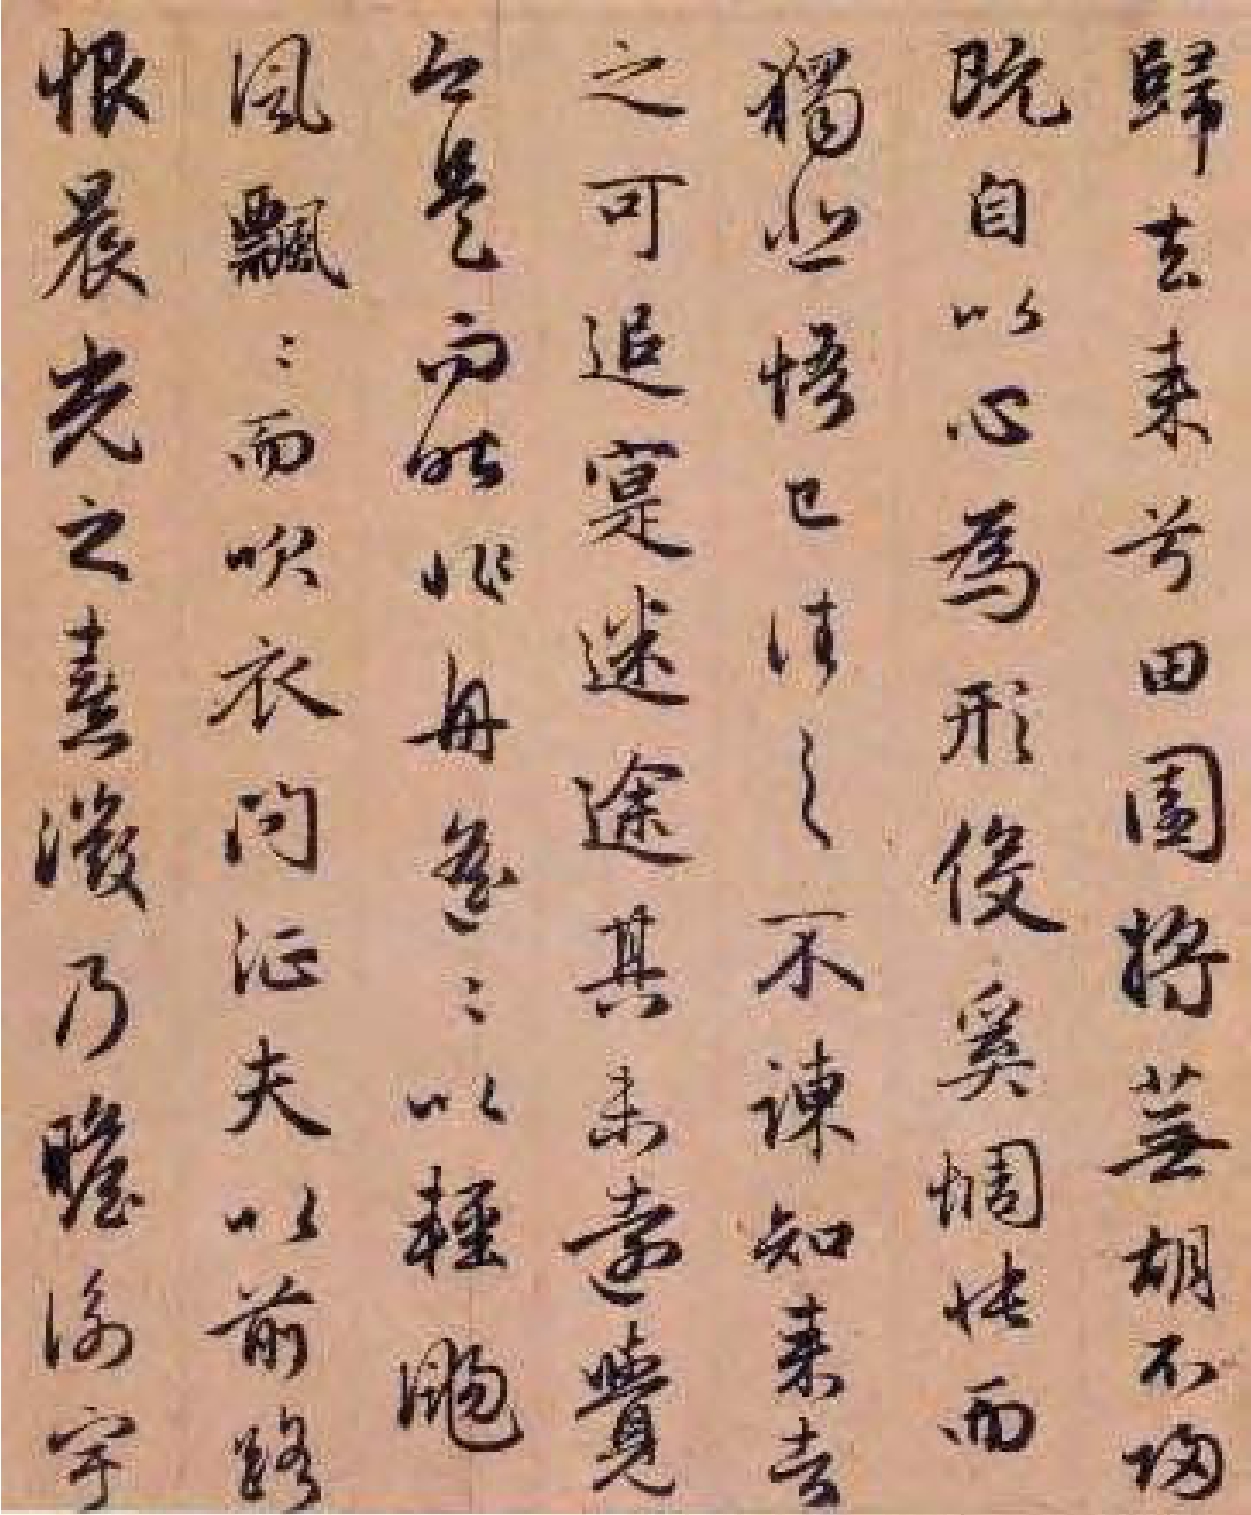 歸去来兮田園將蕪胡不歸
既自以心為形役奚惆悵而
獨悲悟已往之不諫知来者
之可追寔迷途其未遠覺
今是而昨非舟遙〻以輕颺
風飄〻而吹衣問征夫以前路
恨晨光之熹微乃瞻衡宇